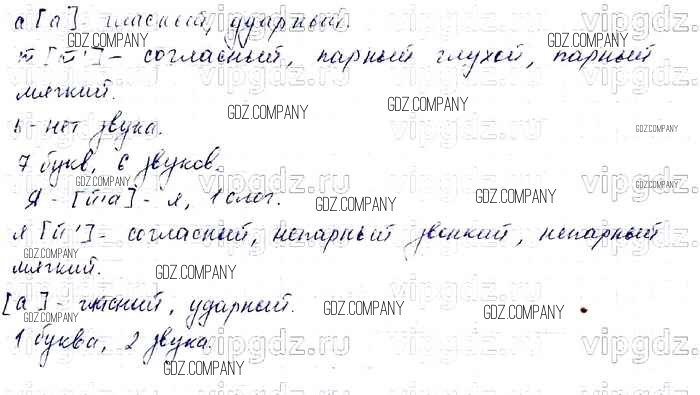 а [а] - гласный, ударный.
т [т'] - согласный, парный глухой, парный
мягкий.
ь - нет звука.
7 букв, 6 звуков.
Я - [й'а] - я, 1 слог.
я [й'] - согласный, непарный звонкий, непарный
мягкий.
[а] - гласный, ударный.
1 буква, 2 звука.
GDZ.COMPANY
vipgdz.ru